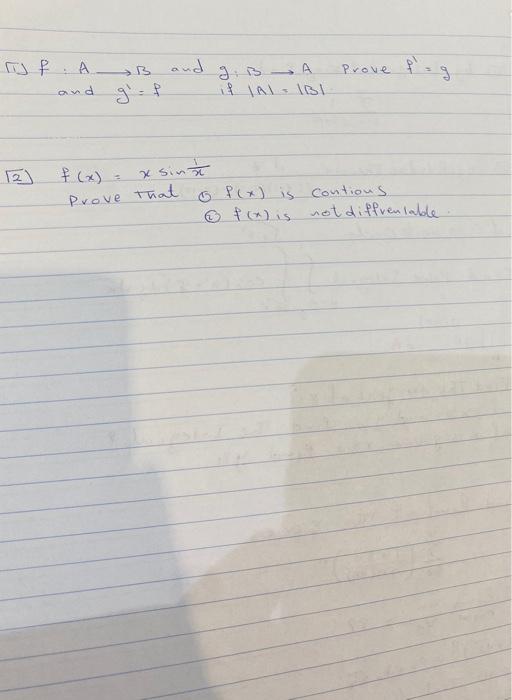 [1] f : A → B and g : B → A Prove f' = g
and g' = f if |A| = |B|.
[2] f(x) = x sin 1/x
Prove that ① f(x) is contious
② f(x) is not diffrenlable.